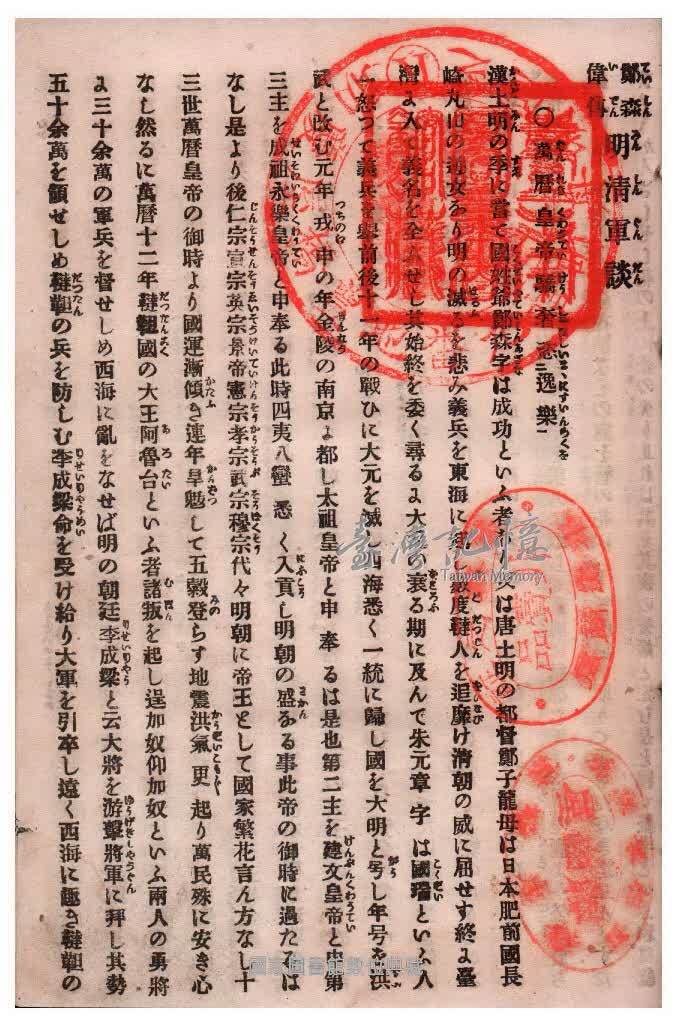 鄭森偉傳 明清軍談
〇萬曆皇帝驕奢
逸樂
漢土明の季に當て國姓爺鄭森字は成功といふ者あり父は唐土明の都督鄭子龍母は日本肥前國長
崎丸山の遊女あり明の滅ぶを悲み義兵を東海に
數度韃人を追靡け清朝の威に屈せす終よ臺
灣よ入て義名を全ふせし其始終を委く尋るよ大
の衰る期に及んで朱元章字は國瑞といふ人
一怒つて義兵を擧前後十一年の戰ひに大元を滅し四海悉く一統に歸し國を大明と号し年号を洪
武と改む元年戊申の年金陵の南京よ都し太祖皇帝と申奉るは是也第二主を建文皇帝と申第
三主を成祖永樂皇帝と申奉る此時四夷八蠻悉く入貢し明朝の盛ある事此帝の御時に過たるは
なし是より後仁宗宣宗英宗景帝憲宗孝宗武宗穆宗代々明朝に帝王として國家繁花言ん方なし十
三世萬曆皇帝の御時より國運漸傾き連年旱魃して五穀登らす地震洪氣更起り萬民殊に安き心
なし然るに萬曆十二年韃靼國の大王阿魯台といふ者諸叛を起し逞加奴仰加奴といふ兩人の勇將
よ三十余萬の軍兵を督せしめ西海に亂をなせば明の朝廷李成梁と云大將を游擊將軍に拜し其勢
五十余萬を領せしめ韃靼の兵を防しむ李成梁命を受け給り大軍を引卒し遠く西海に趣き韃靼の
臺灣記憶
Taiwan Memory